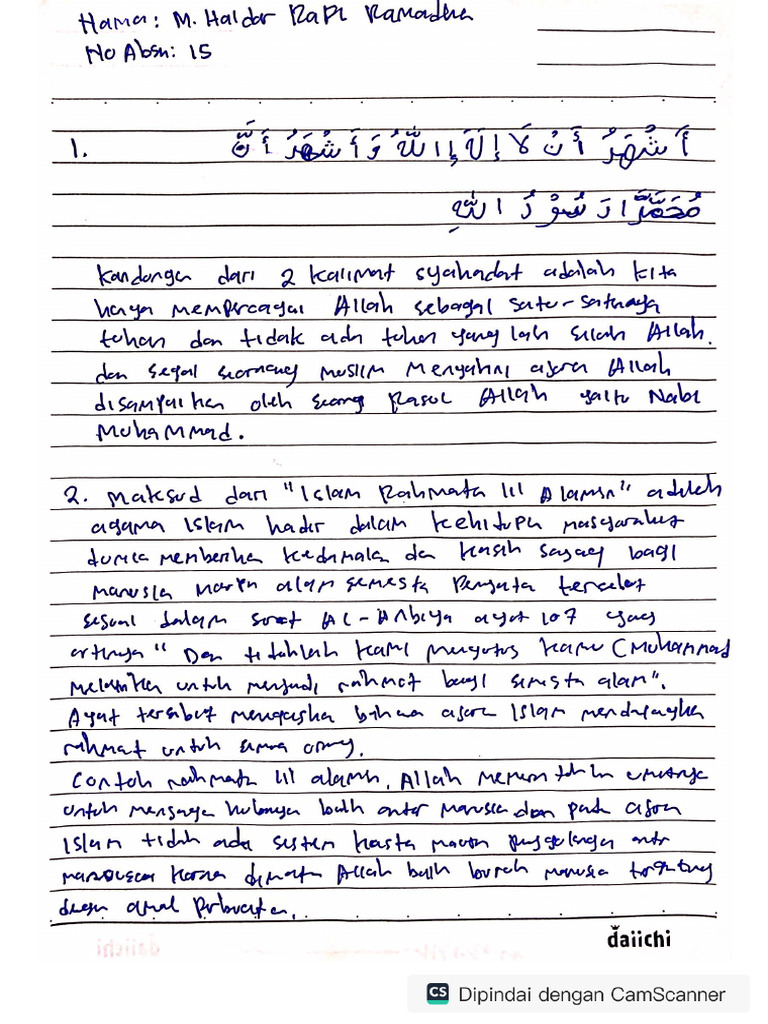 Nama: M. Haldar Rapi Ramadha
No Absn: 15
1. أَشْهَدُ أَنْ لَا إِلَهَ إِلَّا اللّٰهُ وَأَشْهَدُ أَنَّ
مُحَمَّدًا رَسُوْلُ اللّٰهِ
Kandongan dari 2 kalimat syahadat adalah kita
hanya mempercayai Allah sebagai satu-satunya
tuhan dan tidak ada tuhan yang lain selain Allah.
dan segal seorang muslim menyakini ajaran Allah
disampaikan oleh seorang Rasul Allah yaitu Nabi
Muhammad.
2. Maksud dari "Islam Rahmata lil Alamin" adalah
agama Islam hadir dalam kehidupan masyarakat
dunia memberikan kedamaian dan kasih sayang bagi
manusia maupun alam semesta tersebut
sesuai dalam surat Al-Anbiya ayat 107 yang
artinya "Dan tidaklah kami mengutus kamu (Muhammad
melainkan untuk menjadi rahmat bagi semesta alam".
Ayat tersebut menegaskan bahwa ajaran Islam mendatangkan
rahmat untuk semua orang.
Contoh rahmata lil alamin, Allah memerintahkan umatnya
untuk menjaga hubungan baik antar manusia dan pada ajaran
Islam tidak ada sistem kasta maupun penggolongan antar
manusia karna dimata Allah baik buruk manusia tergantung
dengan amal perbuatan.
daiichi
CS Dipindai dengan CamScanner